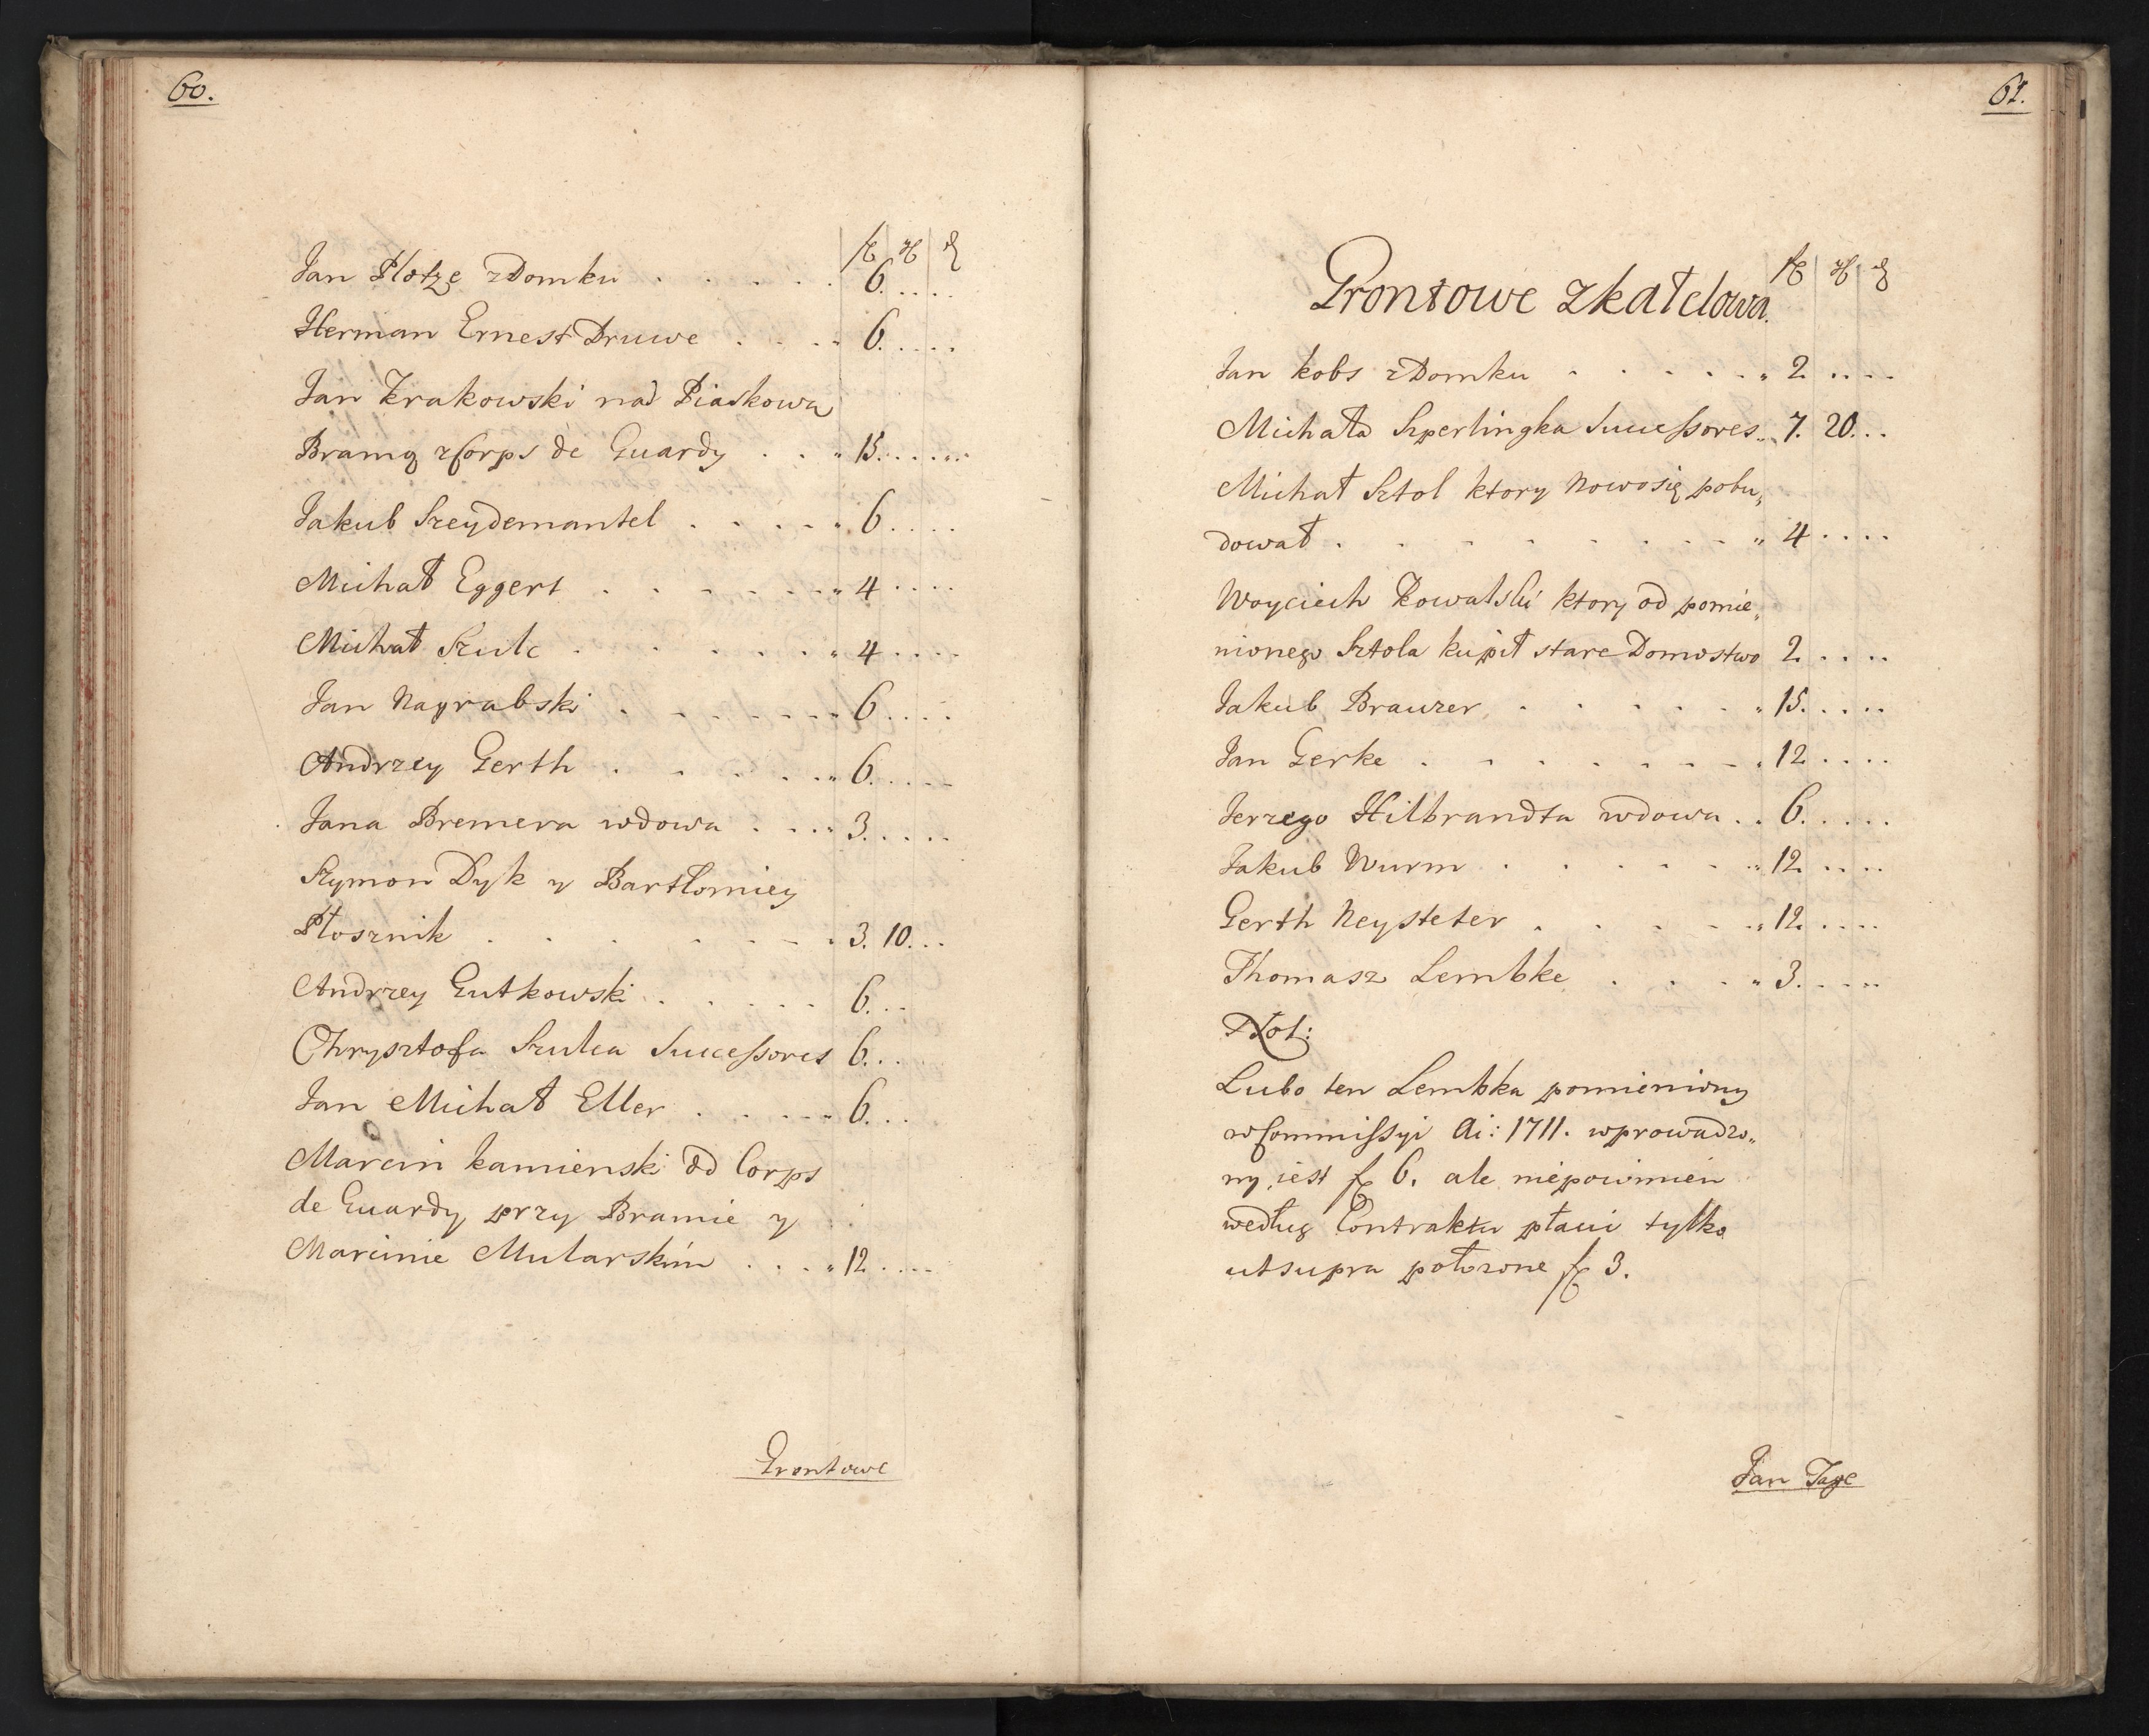 60.
fl gr d
Jan Plotze z Domku . . . . . 6. . . . .
Herman Ernest Druwe . . . . 6. . . . .
Jan Krakowski nad Piaskową
Bramą z Corps de Guardy . . . 15. . . . .
Jakub Szeydemantel . . . . . 6. . . .
Michał Eggert . . . . . . 4 . . . .
Michał Szulc . . . . . . 4 . . . .
Jan Nagrabski . . . . . . 6 . . . .
Andrzey Gerth . . . . . . 6. . . . .
Jana Bremera wdowa . . . . 3. . . . .
Szymon Dyk y Bartłomiey
Płosznik . . . . . . . 3. 10. . .
Andrzey Gutkowski . . . . . 6. . .
Chrysztofa Szulca Successores 6. . .
Jan Michał Eller . . . . . 6. . .
Marcin Kamienski od Corps
de Guardy przy Bramie y
Marcinie Mularskim . . . . 12 . . . .
Grontowe
61.
fl gr d
Grontowe z Kałdowa.
Jan Kobs z Domku . . . . . . 2 . . . .
Michała Szperlingka Successores . . 7. 20. . .
Michał Sztol ktory Nowo się pobu„
dował . . . . . . . . . 4 . . . .
Woyciech Kowalski ktory od pomie„
nionego Sztola kupił stare Domostwo 2 . . . .
Jakub Brauzer . . . . . . 15. . . . .
Jan Gerke . . . . . . . . 12 . . . .
Jerzego Hilbrandta wdowa . . 6. . . . .
Jakub Wurm . . . . . . 12. . . . .
Gerth Neysteter . . . . . 12. . . . .
Thomasz Lembke . . . . 3. . . . .
Not:
Lubo ten Lembka pomieniony
w Commissyi Ai: 1711. wprowadzo„
ny jest fl 6. ale niepowinien
według Contraktu płacić tylko
ut supra położone fl 3.
Jan Tage